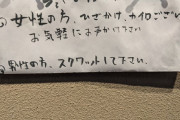 ○女性の方、ひざかけ、カイロございます
お気軽にお声かけ下さい
○男性の方、スクワットして下さい。